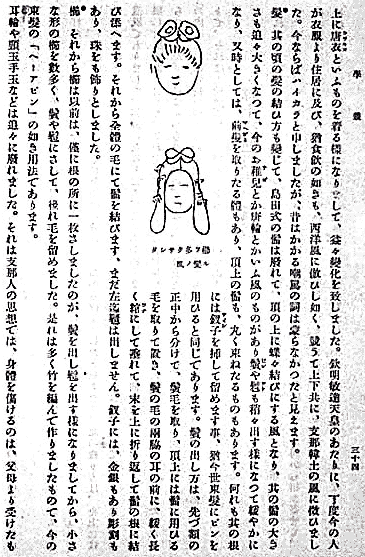 學藝
三十四
上に唐衣といふものを着る樣になりまして、益々變化を致しました。欽明敏達天皇のあたりに、丁度今の人
が衣服より住居に及び、猶食飲の如きも、西洋風に倣ひし如く、競うて上下共に、支那韓土の風に倣ひまし
た。今ならばハイカラと申しましたが、昔はかかる嘲罵の詞は蒙らなかつたと見えます。
髮。其の頃の髮の結び方も變じて、島田式の髷は廢れて、頂の上に蝶々結びにする風となり、其の髷の大き
さも追々大きくなつて、今のお稚兒とか唐輪とかいふ風のものがあり、鬢や髱も稍々出す樣になつて緩やかに
なり、又時としては、前髮を取りたる體もあり、頂上の髷も、丸く束ねたるものもあります。何れも其の根
には釵子を挿して留めます事、猶今世束髮にピンを
用ひると同じであります。髮の出し方は、先づ額の
正中から分けて、鬢毛を取り、頂上には髷に用ひる
毛を取りて置き、鬢の毛の兩脇の耳の前に、緩く長
く綰にして垂れて、末を上に折り返して髷の根に結
櫛ヲ多クサシタ
ル髮ノ風
び添へます。それから全體の毛にて髷を結びます、まだ左迄髱は出しません。釵子には、金銀もあり彫刻も
あり、珠をも飾りとしました。
櫛。それから櫛は以前は、僅に根の所に一枚さしましたのが、鬢を出し髱を出す樣になりましてから、小さ
な形の櫛を數多く、鬢や髱にさして、後れ毛を留めました。是れは多く竹を編んで作りましたもので、今の
束髮の「ヘーアピン」の如き用法であります。
耳輪や頸玉手玉などは追々に廢れました。それは支那人の思想では、身體を傷けるのは、父母より受けたも